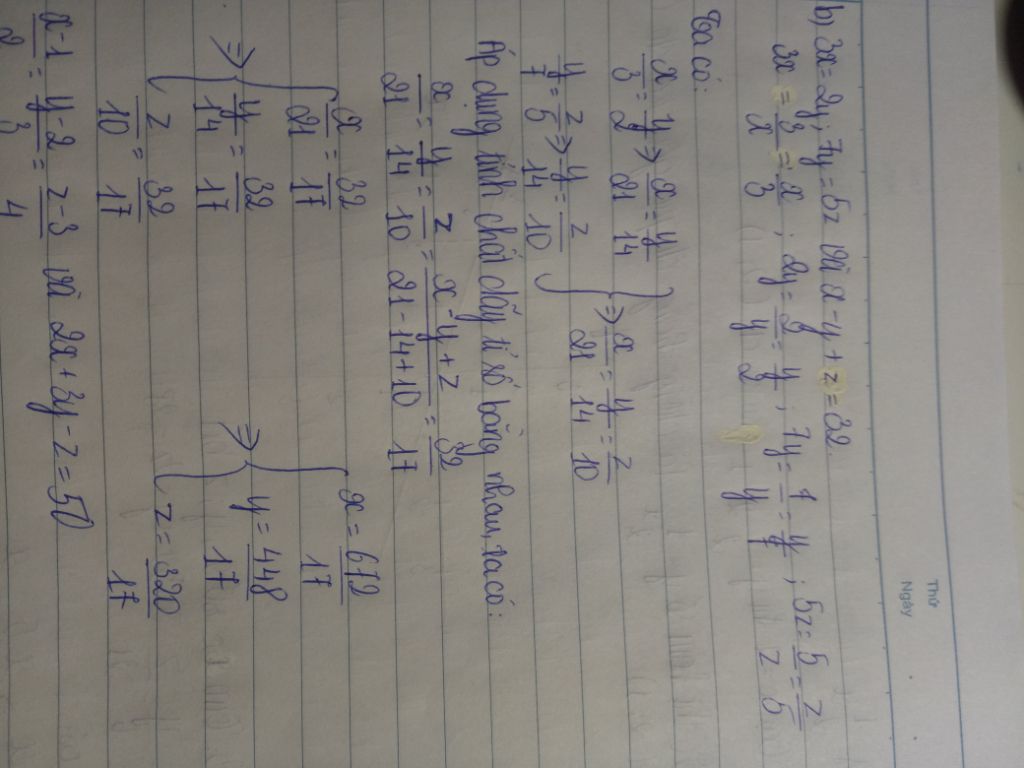 Thứ
Ngày
b) 3x = 2y ; 7y = 5z và x - y + z = 32
3x = 3/x = x/3 ; 2y = 2/y = y/2 ; 7y = 7/y = y/7 ; 5z = 5/z = z/5
Ta có:
x/3 = y/2 => x/21 = y/14
y/7 = z/5 => y/14 = z/10 } => x/21 = y/14 = z/10
Áp dụng tính chất dãy tỉ số bằng nhau, ta có:
x/21 = y/14 = z/10 = x-y+z/21-14+10 = 32/17
=> { x/21 = 32/17 => { x = 672/17
y/14 = 32/17 y = 448/17
z/10 = 32/17 z = 320/17
x-1/2 = y-2/3 = z-3/4 và 2x + 3y - z = 50